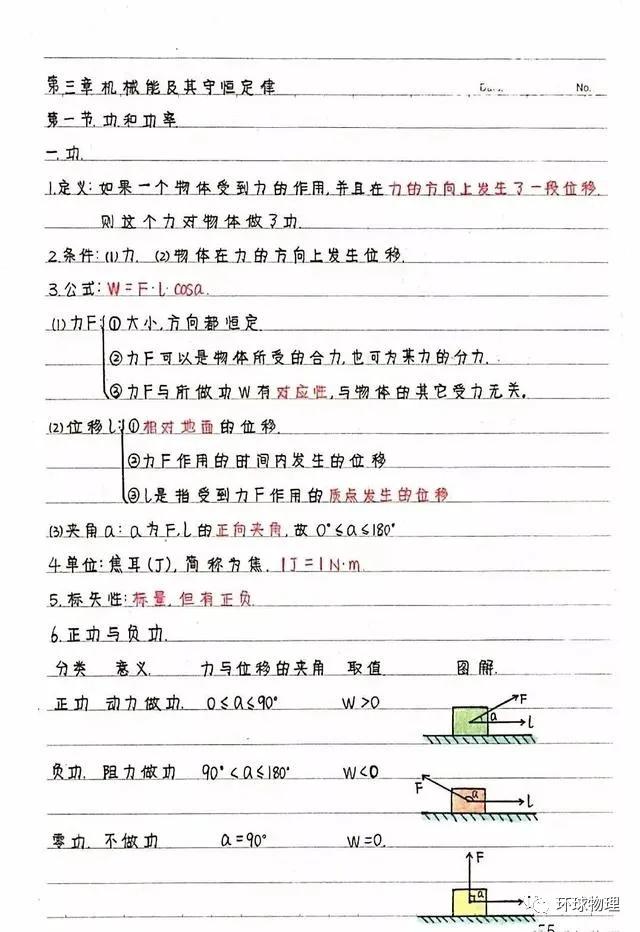 第三章机械能及其守恒定律 No.
第一节.功和功率
一.功.
1.定义:如果一个物体受到力的作用,并且在力的方向上发生了一段位移.
则这个力对物体做了功.
2.条件:(1)力. (2)物体在力的方向上发生位移.
3.公式:W=F·l·cosa.
(1)力F:①大小,方向都恒定.
②力F可以是物体所受的合力,也可为某力的分力.
③力F与所做功W有对应性,与物体的其它受力无关。
(2)位移l:①相对地面的位移.
②力F作用的时间内发生的位移
③l是指受到力F作用的质点发生的位移
(3)夹角a:a为F,l的正向夹角,故0°≤a≤180°
4.单位:焦耳(J),简称为焦.1J=1N·m.
5.标矢性:标量,但有正负.
6.正功与负功.
分类 意义. 力与位移的夹角 取值 图解.
正功 动力做功. 0≤a≤90° W>0 F a l
负功. 阻力做功 90°<a≤180° W<0 F a l
零功. 不做功 a=90° W=0. F a
环球物理